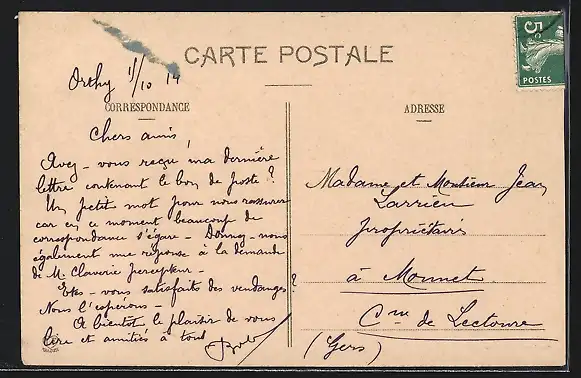 CARTE POSTALE
5c
POSTES
Orthy 1/10 14
CORRESPONDANCE
ADRESSE
Chers amis,
Avez-vous reçu ma dernière
lettre contenant le bon de poste ?
Un petit mot pour nous rassurer
car en ce moment beaucoup de
correspondance s'égare - Donnez-nous
également une réponse à la demande
de M. Claverie percepteur -
Etes-vous satisfaits des vendanges ?
Nous l'espérons -
A bientôt le plaisir de vous
lire et amitiés à tous
Madame et Monsieur Jean
Larrieu
propriétaires
à Monnet
Cne de Lectoure
(Gers)